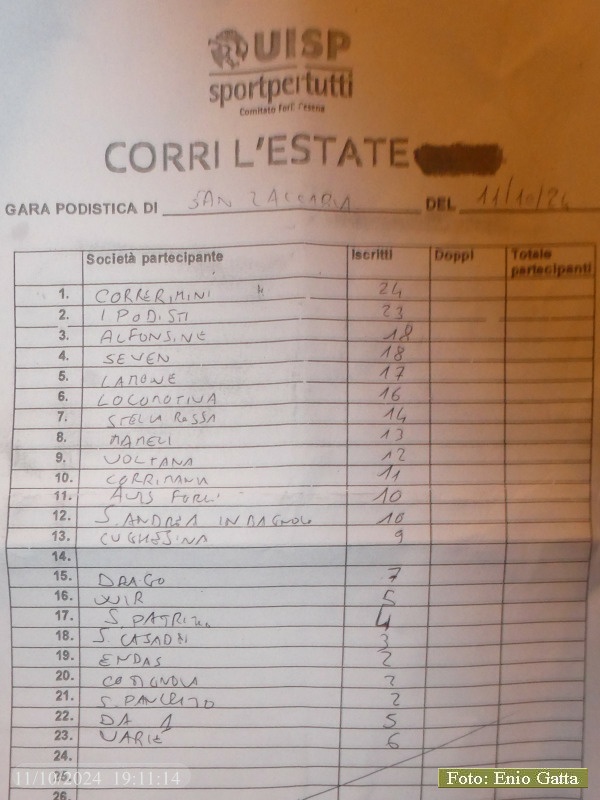 UISP
sportpertutti
Comitato Forlì Cesena
CORRI L'ESTATE
GARA PODISTICA DI SAN ZACCARIA DEL 11/10/24
Società partecipante Iscritti Doppi Totale partecipanti
1. CORRERIMINI 24
2. I PODISTI 23
3. ALFONSINE 18
4. SEVEN 18
5. LAMONE 17
6. LOCOMOTIVA 16
7. STELLA ROSSA 14
8. MAMELI 13
9. VOLTANA 12
10. CORRIMANIA 11
11. AVIS FORLI 10
12. S. ANDREA IN BAGNOLO 10
13. 9
14.
15. DRAGO 7
16. 5
17. S. PATRIZIO 4
18. S. CASADEI 3
19. ENDAS 2
20. COTIGNOLA 2
21. S. PANCRAZIO 2
22. DA 1 5
23. VARIE 6
24.
25.
26.
11/10/2024 19:11:14
Foto: Enio Gatta